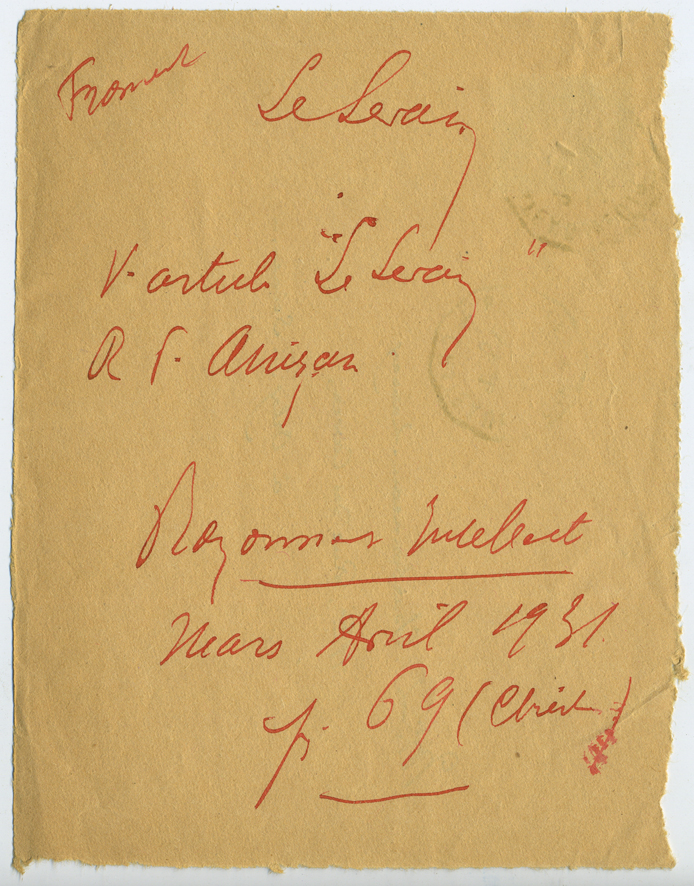 Froment
Le Levain
V. article "Le Levain"
R P. Anizan
Rayonnement Intellect
Mars Avril 1931
p. 69 (Christ)